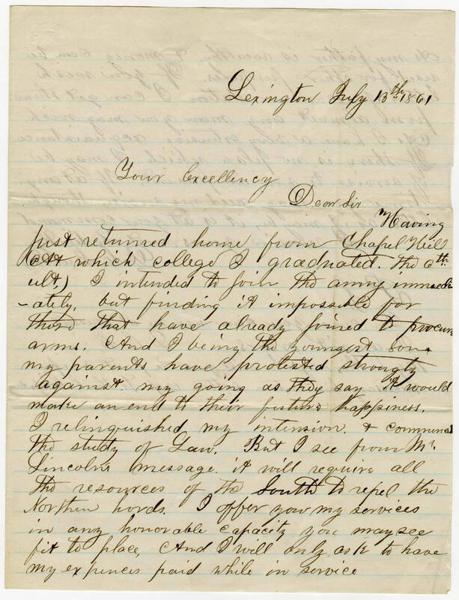 Lexington July 13th 1861
Your Excellency
Dear Sir
Having
just returned home from Chapel Hill
(At which college I graduated. the 6th
ult) I intended to join the army immedi
-ately, but finding it impossible for
those that have already joined to procure
arms. And I being the youngest son.
my parents have protested strongly
against my going as they say it would
make an end to their future happiness.
I relinquished my intension & commenced
the study of Law. But I see from Mr.
Lincolns message it will require all
the resources of the South to repel the
Northern hords. I offer you my services
in any honorable capacity you may see
fit to place, And I will only ask to have
my expences paid while in service